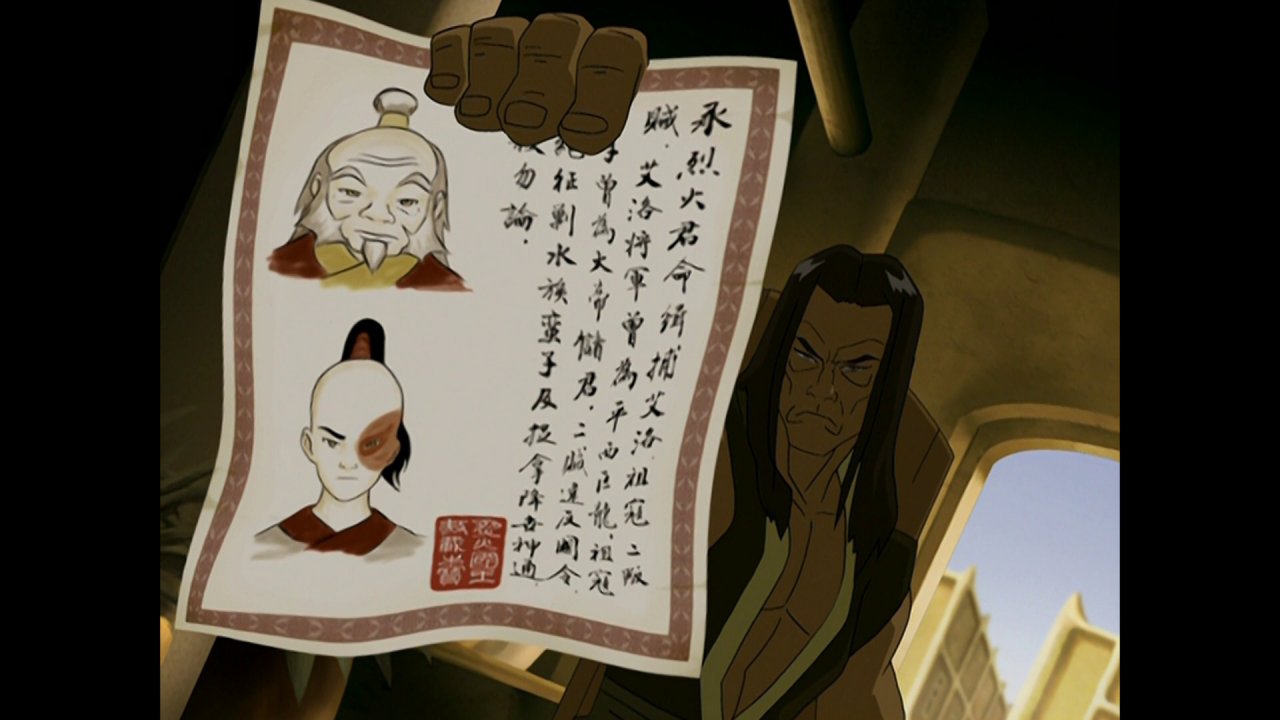 承烈火君命緝捕艾洛．祖寇二叛
賊．艾洛將軍曾為平西巨龍．祖寇
子曾為大帝儲君．二賊違反國令．
絕征剿水族蠻子及捉拿降世神通．
殺勿論．